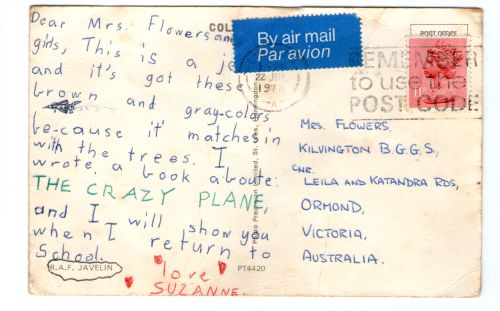 Dear Mrs. Flowers and
girls, This is a je
and it's got these
brown and gray colors
be-cause it matches in
with the trees. I
wrote a book aboute
THE CRAZY PLANE,
and I will show you
when I return to
School.
love
SUZANNE.
R.A.F. JAVELIN
PT4420
COL
By air mail
Par avion
POST OFFICE
22 JNE
197
REMEMBER
to use the
POST CODE
MRS. FLOWERS,
KILVINGTON B.G.G.S,
CNR.
LEILA AND KATANDRA RDS,
ORMOND,
VICTORIA,
AUSTRALIA.